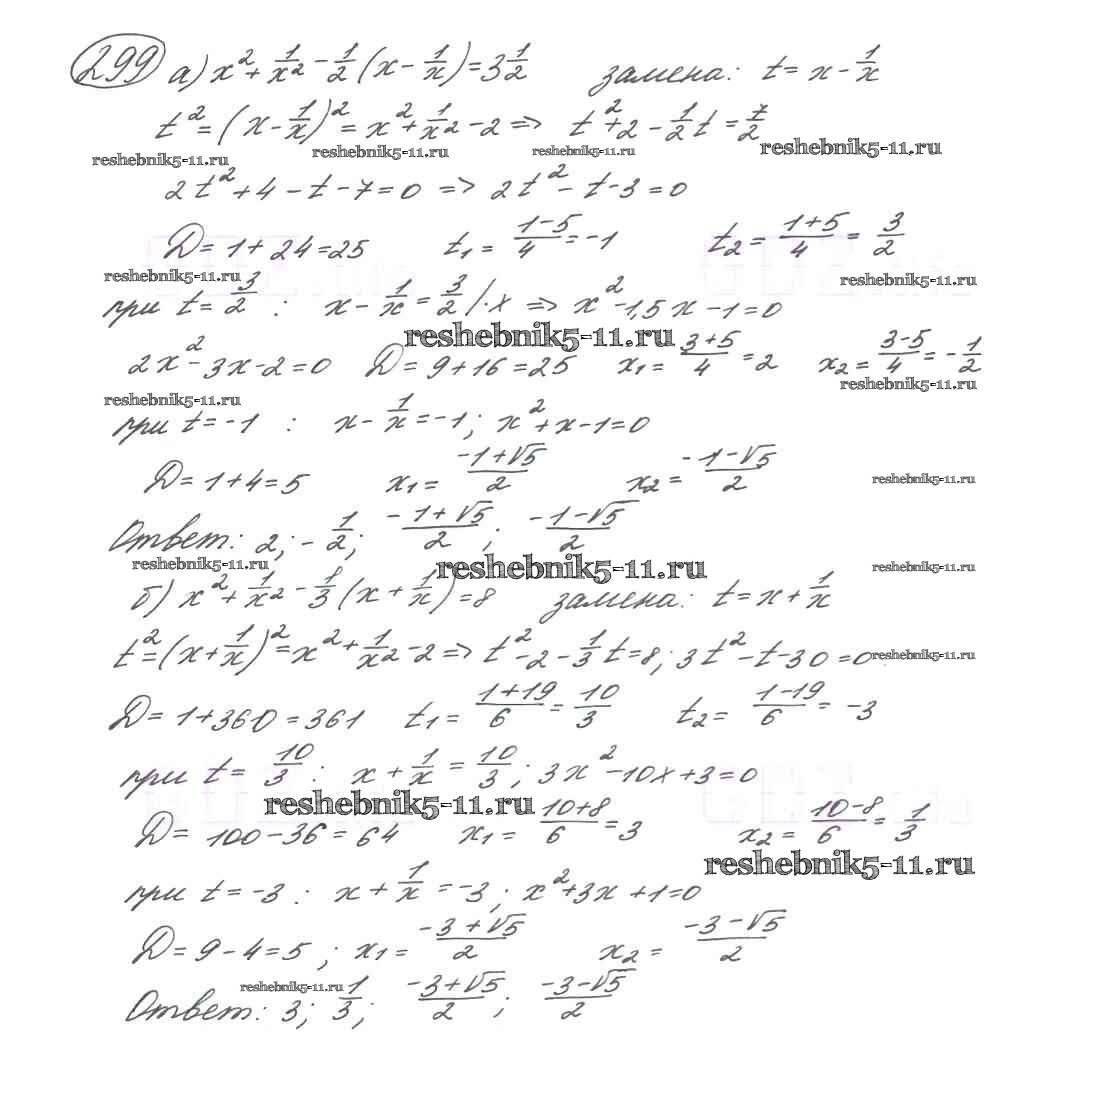 299 а) x² + 1/x² - 1/2 (x - 1/x) = 3 1/2 замена: t = x - 1/x
t² = (x - 1/x)² = x² + 1/x² - 2 => t² + 2 - 1/2 t = 7/2
reshebnik5-11.ru reshebnik5-11.ru reshebnik5-11.ru reshebnik5-11.ru
2t² + 4 - t - 7 = 0 => 2t² - t - 3 = 0
D = 1 + 24 = 25 t₁ = (1-5)/4 = -1 t₂ = (1+5)/4 = 3/2
reshebnik5-11.ru reshebnik5-11.ru
при t = 3/2 : x - 1/x = 3/2 | · x => x² - 1,5x - 1 = 0
reshebnik5-11.ru
2x² - 3x - 2 = 0 D = 9 + 16 = 25 x₁ = (3+5)/4 = 2 x₂ = (3-5)/4 = -1/2
reshebnik5-11.ru reshebnik5-11.ru
при t = -1 : x - 1/x = -1; x² + x - 1 = 0
D = 1 + 4 = 5 x₁ = (-1+√5)/2 x₂ = (-1-√5)/2
reshebnik5-11.ru
Ответ: 2; -1/2; (-1+√5)/2; (-1-√5)/2
reshebnik5-11.ru reshebnik5-11.ru reshebnik5-11.ru
б) x² + 1/x² - 1/3 (x + 1/x) = 8 замена: t = x + 1/x
t² = (x + 1/x)² = x² + 1/x² - 2 => t² - 2 - 1/3 t = 8; 3t² - t - 30 = 0
reshebnik5-11.ru
D = 1 + 360 = 361 t₁ = (1+19)/6 = 10/3 t₂ = (1-19)/6 = -3
при t = 10/3 : x + 1/x = 10/3; 3x² - 10x + 3 = 0
reshebnik5-11.ru
D = 100 - 36 = 64 x₁ = (10+8)/6 = 3 x₂ = (10-8)/6 = 1/3
reshebnik5-11.ru
при t = -3 : x + 1/x = -3; x² + 3x + 1 = 0
D = 9 - 4 = 5; x₁ = (-3+√5)/2 x₂ = (-3-√5)/2
reshebnik5-11.ru
Ответ: 3; 1/3; (-3+√5)/2; (-3-√5)/2